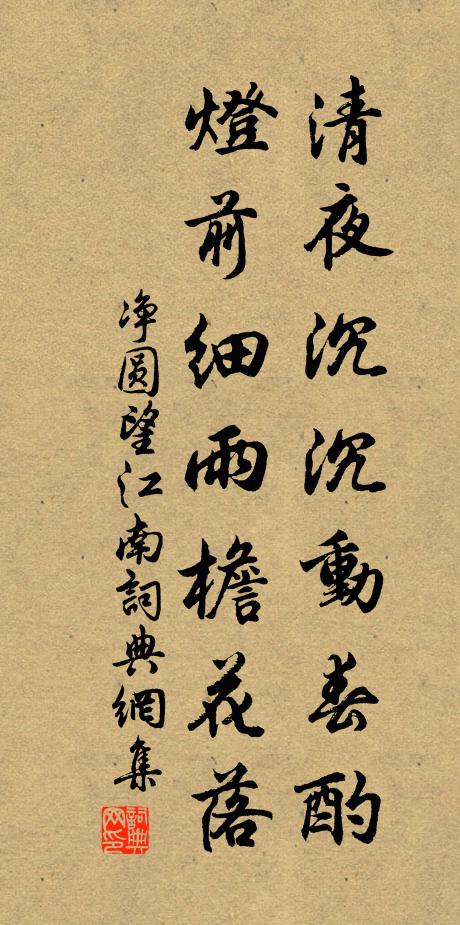 清夜沉沉動春酌
燈前細雨檐花落
净圆望江南詞典網集
詞典网印